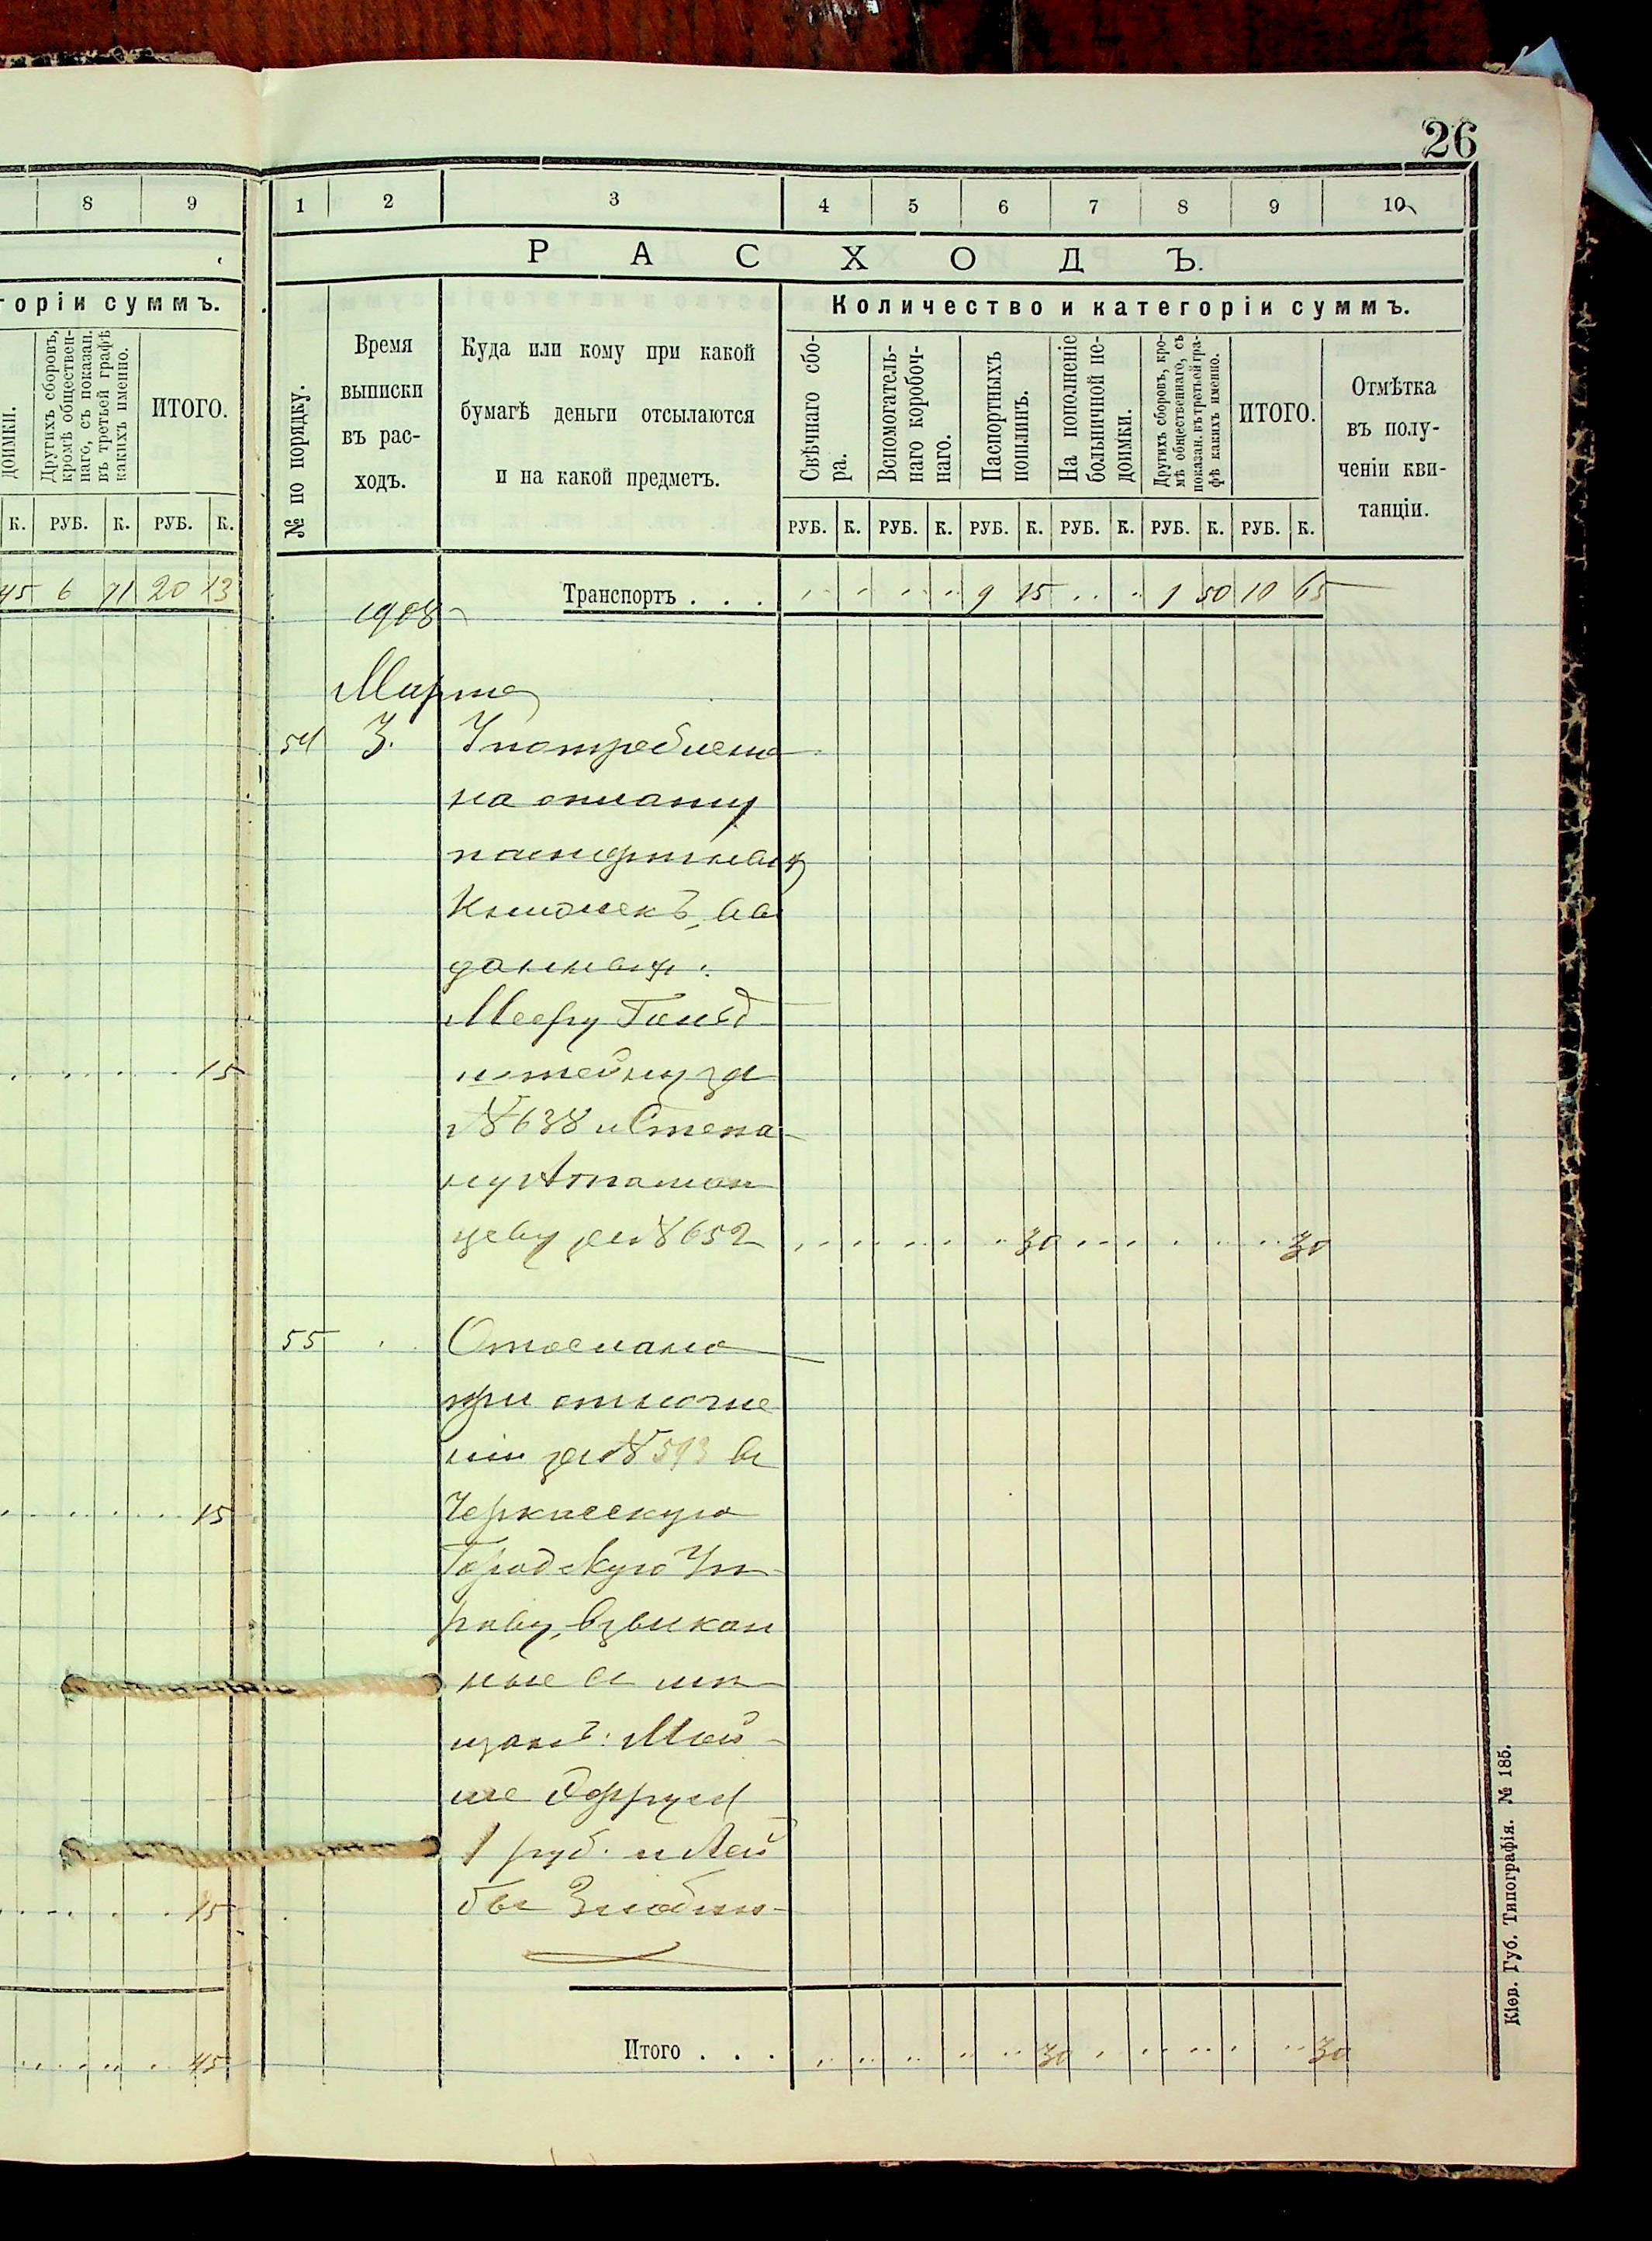 26
8 9
горіи суммъ.
доимки.
Другихъ сборовъ,
кромѣ обществен-
наго, съ показан.
въ третьей графѣ
какихъ именно.
ИТОГО.
К. РУБ. К. РУБ. К.
45 6 71 20 13
15
15
15
45
1 2 3 4 5 6 7 8 9 10
РАСХОДЪ.
№ по порядку.
Время
выписки
въ рас-
ходъ.
Куда или кому при какой
бумагѣ деньги отсылаются
и на какой предметъ.
Количество и категоріи суммъ.
Свѣчнаго сбо-
ра.
Вспомогатель-
наго коробоч-
наго.
Паспортныхъ
пошлинъ.
На пополненіе
больничной не-
доимки.
Другихъ сборовъ, кро-
мѣ общественнаго, съ
показан. въ третьей гра-
фѣ какихъ именно.
ИТОГО.
Отмѣтка
въ полу-
ченіи кви-
танціи.
РУБ. К. РУБ. К. РУБ. К. РУБ. К. РУБ. К. РУБ. К.
Транспортъ . . . 9 15 1 50 10 65
1908
Марта
54 3. Употреблено
на оплату
паспортныхъ
Книжекъ, вы
данныхъ:
Мееру Гольд
штейну за
№ 638 и Степа
ну
цеву за № 652 30 30
55 Отослано
при отноше
ніи за № 593 въ
Черкасскую
Городскую Уп
раву, взыскан
ные съ мѣ
щанъ: Мой
ше
1 руб. и Лей
бы
Итого . . . 30 30
Кіев. Губ. Типографія. № 185.